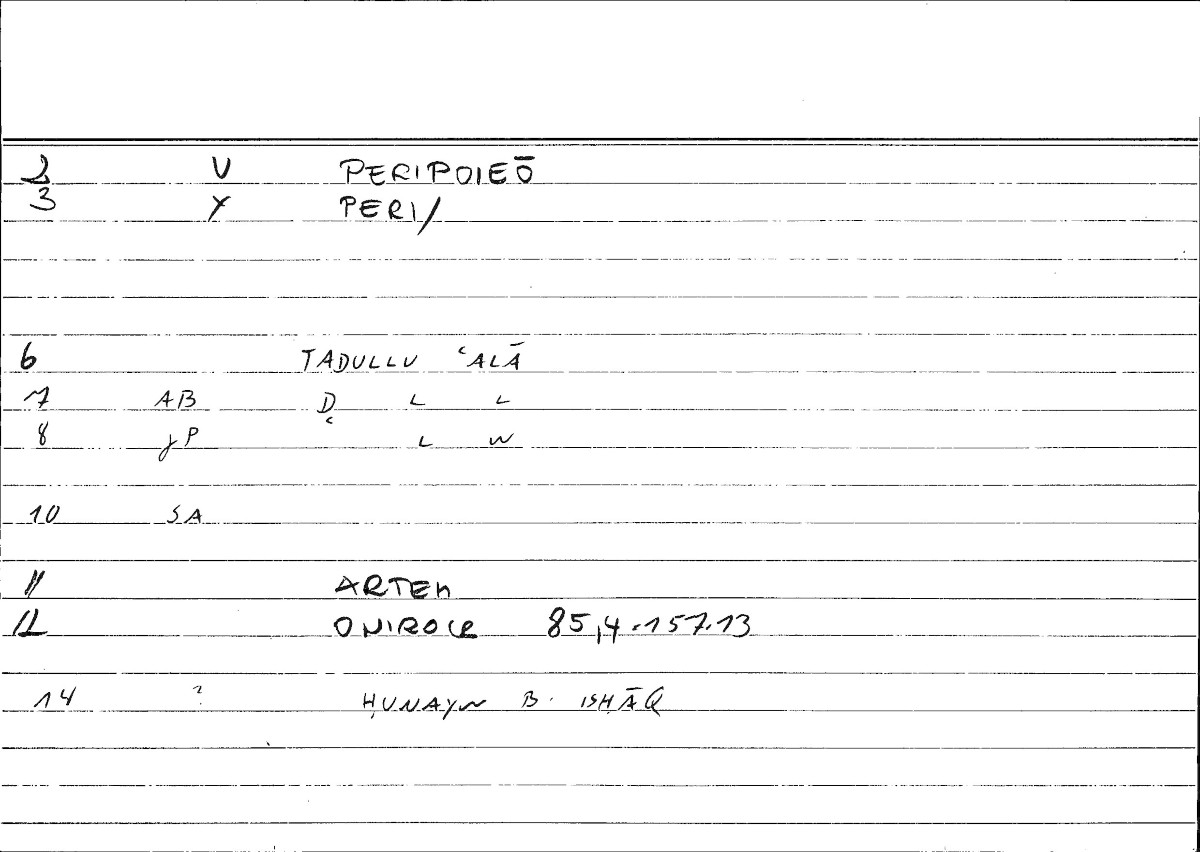 2 V PERIPOIEŌ
3 Y PERI/
6 TADULLU ʿALĀ
7 AB Ḍ L L
8 jP L W
10 SA
11 ARTEM
12 ONIROCR 85,4.157.13
14 ? ḤUNAYN B. ISḤĀQ